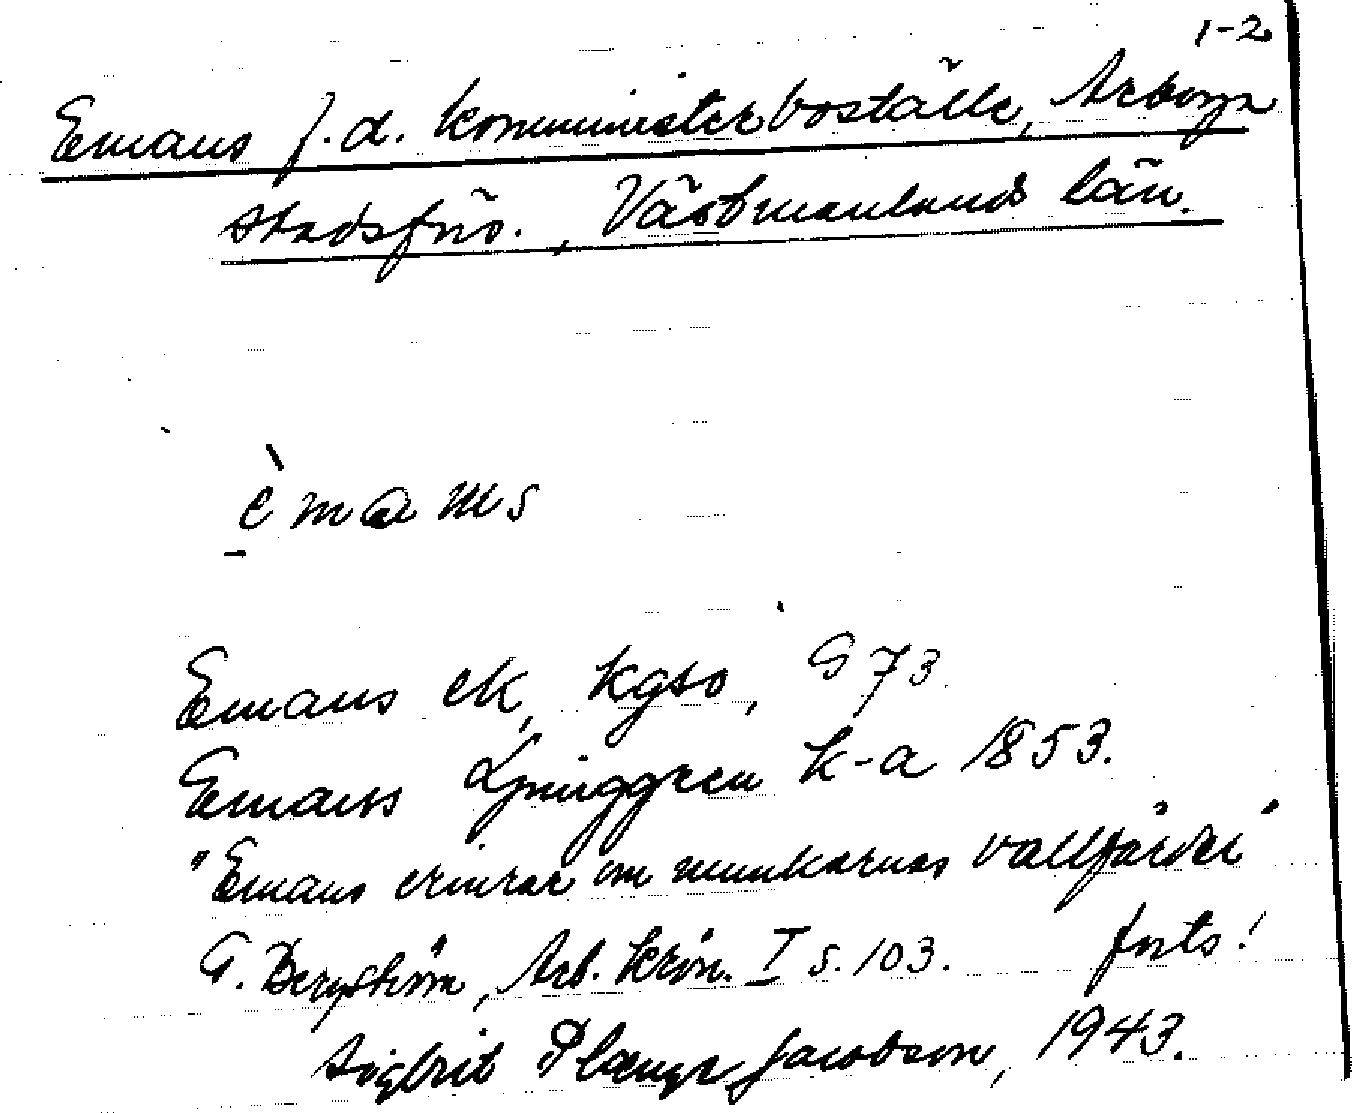 1-2
Emaus f.d. komministerboställe, Arboga
stadsförs., Västmanlands län.
èmaus
Emaus ek, kgso, G 73
Emaus Ljunggren k-a 1853.
"Emaus erinrar om munkarnas vallfärder"
G. Bergström, Arb. krön. I s. 103. forts!
Sigbrit Plænge Jacobson, 1943.